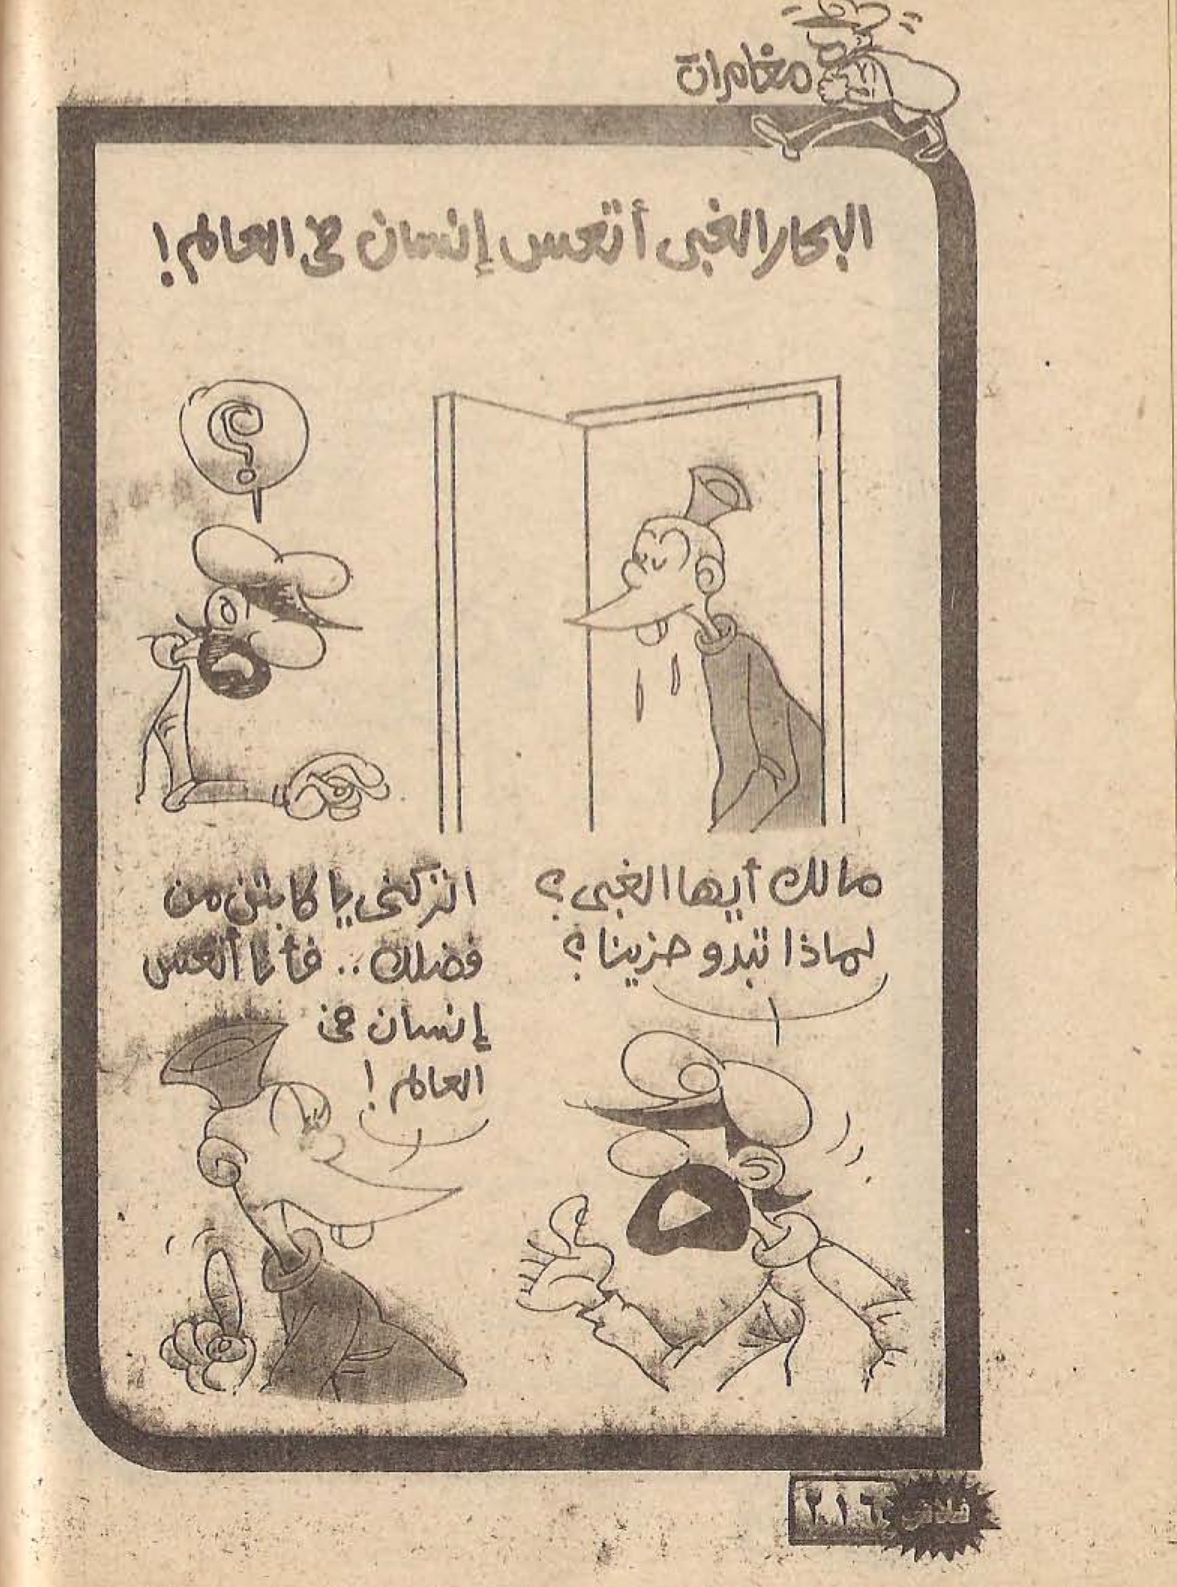 مغامرات
البحار الغبى أتعس إنسان فى العالم!
؟
مالك أيها الغبى؟
لماذا تبدو حزينا؟
اتركنى يا كابتن من
فضلك.. فأنا أتعس
إنسان فى
العالم!
فلاش
٢١٦